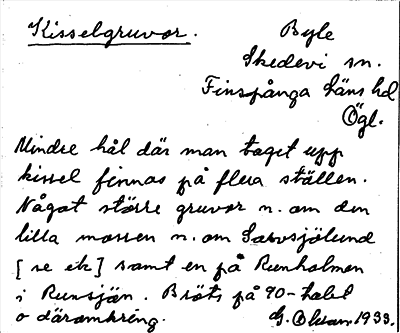 Kisselgruvor. Byle
Skedevi sn.
Finspånga läns hd
Ögl.
Mindre hål där man taget upp
kissel finnas på flera ställen.
Något större gruvor n. om den
lilla mossen n. om Sarvsjölund
[se ek] samt en på Runholmen
i Runsjön. Bröts på 90-talet
o däromkring. G. Olsson, 1933.